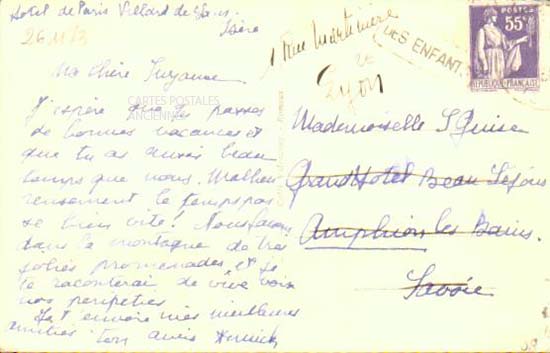 Hotel de Paris Villard de Lans.
Isère
26 11 / 3
Ma chère Suzanne
J'espère que tu passes
de bonnes vacances et
que tu as aussi beau
temps que nous. Malheu
reusement le temps pas
se bien vite! Nous faisons
dans la montagne de très
jolies promenades, et je
te raconterai de vive voix
nos péripéties
Je t'envoie mes meilleures
amitiés ton amie
CARTES POSTALES
ANCIENNES
1 Rue Martinière
Lyon
DES ENFANTS
POSTES
55c
Mademoiselle S Guise
Grand Hotel Beau Séjour
Amphion les Bains.
Savoie